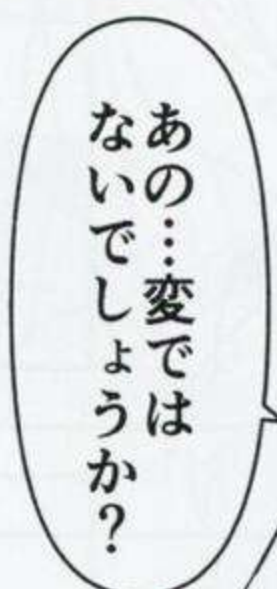 あの…変では
ないでしょうか？